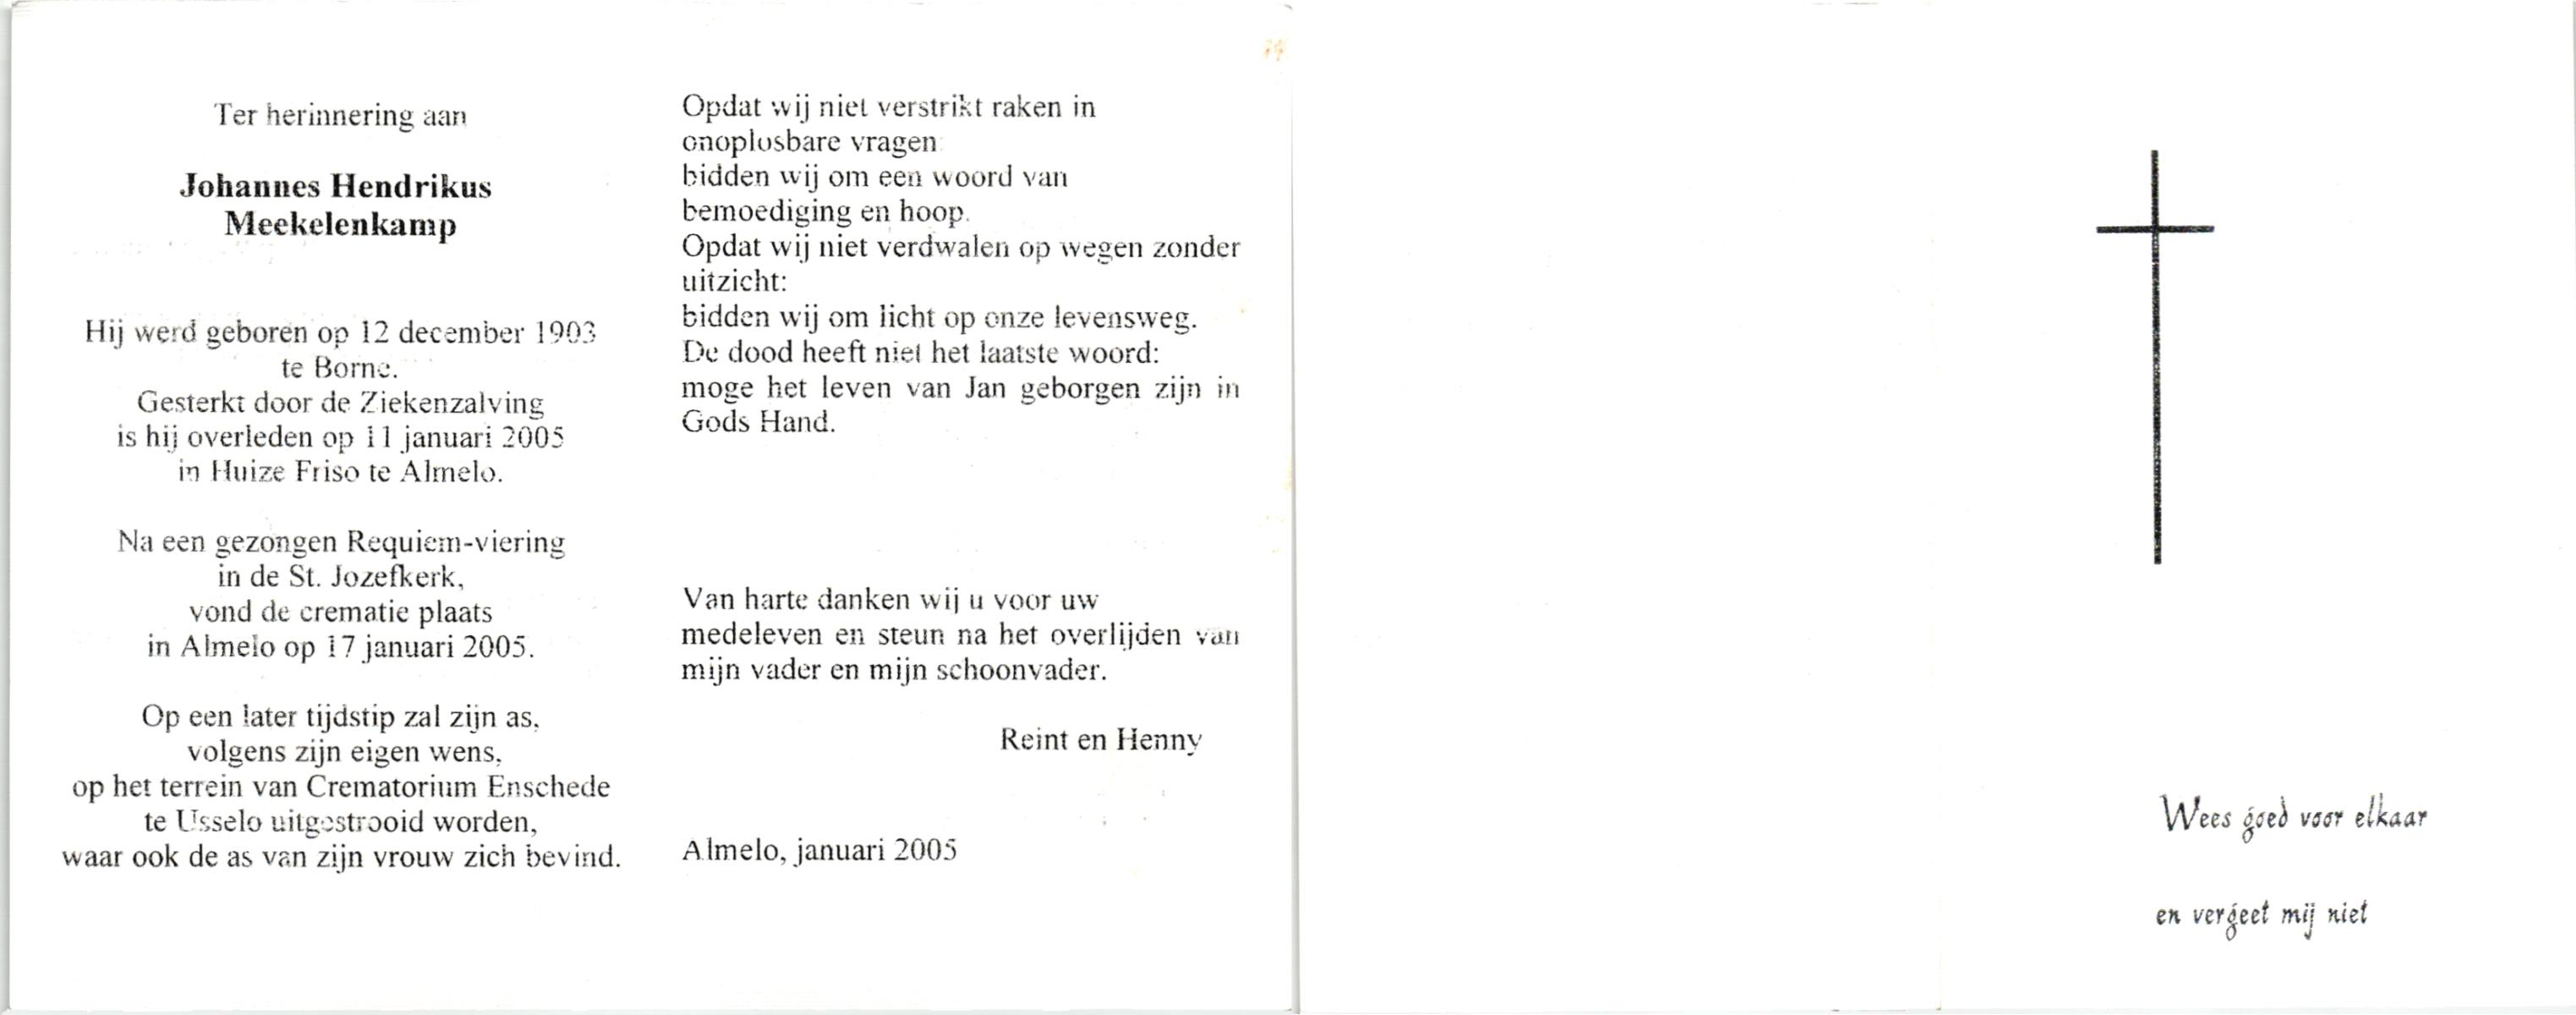 Ter herinnering aan
Johannes Hendrikus
Meekelenkamp
Hij werd geboren op 12 december 1903
te Borne.
Gesterkt door de Ziekenzalving
is hij overleden op 11 januari 2005
in Huize Friso te Almelo.
Na een gezongen Requiem-viering
in de St. Jozefkerk,
vond de crematie plaats
in Almelo op 17 januari 2005.
Op een later tijdstip zal zijn as,
volgens zijn eigen wens,
op het terrein van Crematorium Enschede
te Usselo uitgestrooid worden,
waar ook de as van zijn vrouw zich bevind.
Opdat wij niet verstrikt raken in
onoplosbare vragen
bidden wij om een woord van
bemoediging en hoop.
Opdat wij niet verdwalen op wegen zonder
uitzicht:
bidden wij om licht op onze levensweg.
De dood heeft niet het laatste woord:
moge het leven van Jan geborgen zijn in
Gods Hand.
Van harte danken wij u voor uw
medeleven en steun na het overlijden van
mijn vader en mijn schoonvader.
Reint en Henny
Almelo, januari 2005
Wees goed voor elkaar
en vergeet mij niet